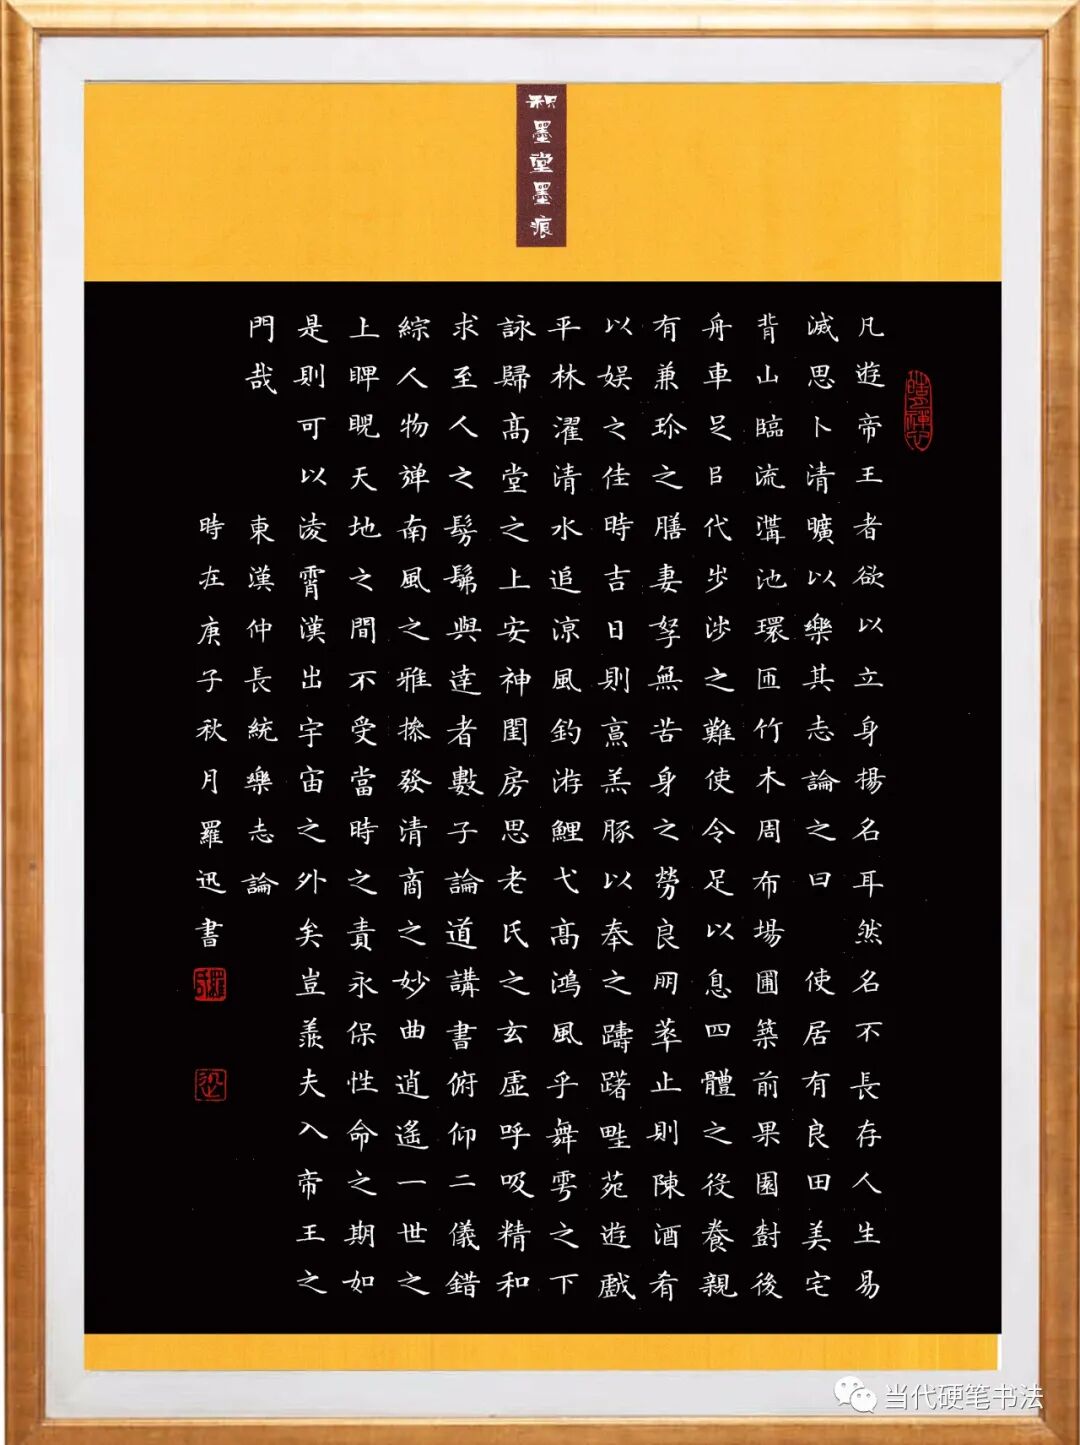 积墨堂墨痕
凡遊帝王者欲以立身揚名耳然名不長存人生易
滅思卜清曠以樂其志論之曰 使居有良田美宅
背山臨流溝池環匝竹木周布場圃築前果園樹後
舟車足㠯代步涉之難使令足以息四體之役養親
有兼珍之膳妻孥無苦身之勞良朋萃止則陳酒肴
以娱之佳時吉日則烹羔豚以奉之躊躇畦苑遊戲
平林濯清水追涼風釣游鯉弋高鴻風乎舞雩之下
詠歸高堂之上安神閨房思老氏之玄虛呼吸精和
求至人之髣髴與達者數子論道講書俯仰二儀錯
綜人物弹南風之雅操發清商之妙曲逍遙一世之
上睥睨天地之間不受當時之責永保性命之期如
是則可以淩霄漢出宇宙之外矣豈羨夫入帝王之
門哉 東漢仲長統樂志論
時在庚子秋月羅迅書
当代硬笔书法